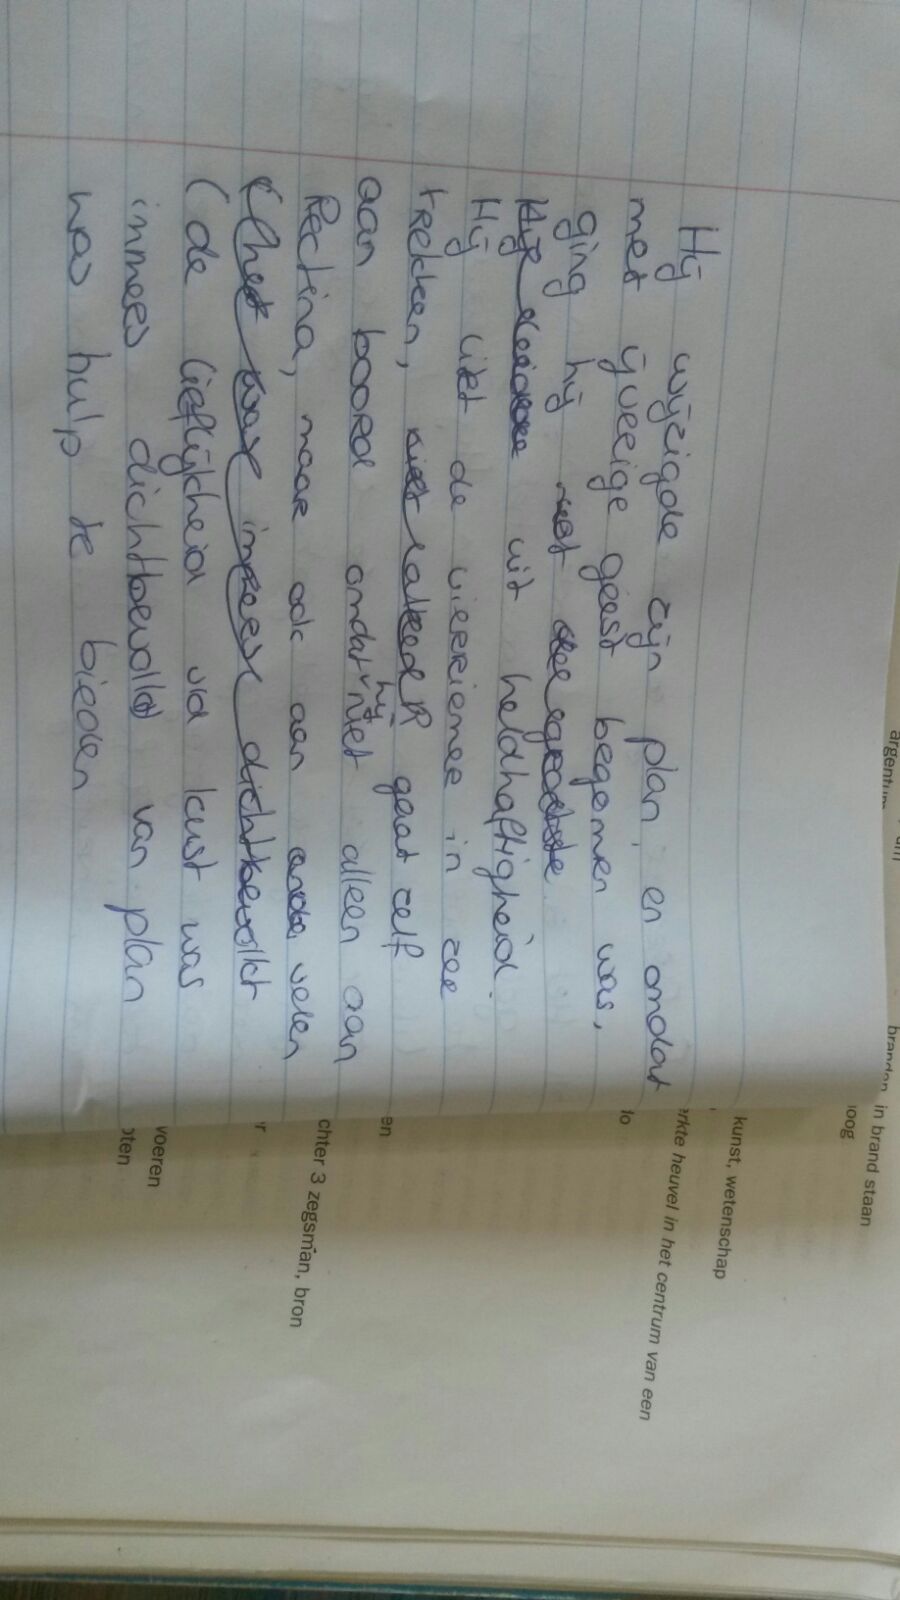 Hij wijzigde zijn plan, en omdat
met ijverige geest begonnen was,
ging hij met
uit heldhaftigheid.
Hij liet de vierriemee in zee
trekken, gaat zelf
aan boord omdat hij niet alleen aan
Rectina, maar ook aan velen
(het was immers dichtbevolkt
(de lieflijkheid vd kust was
immers dichtbevolkt) van plan
was hulp te bieden
argentum
um
branden
in brand staan
oog
kunst, wetenschap
erkte heuvel in het centrum van een
lo
en
chter 3 zegsman, bron
r
voeren
oten